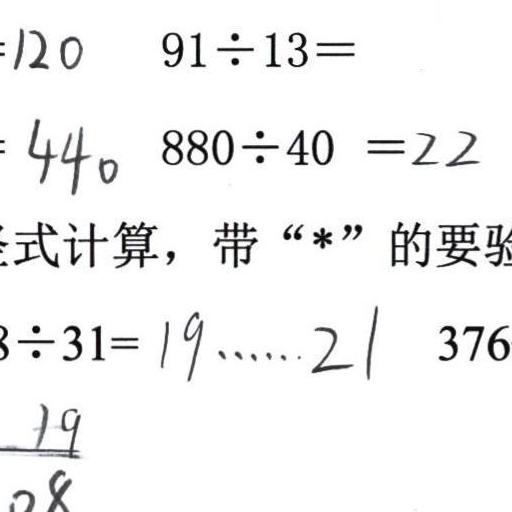 =120 91÷13=
=440 880÷40 =22
式计算，带“*”的要验
8÷31=19……21 376
19
08